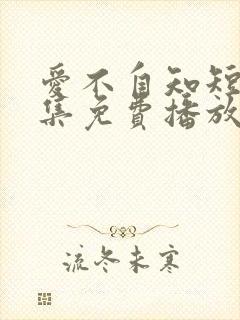 愛不自知短
集免費播放
流冬未寒